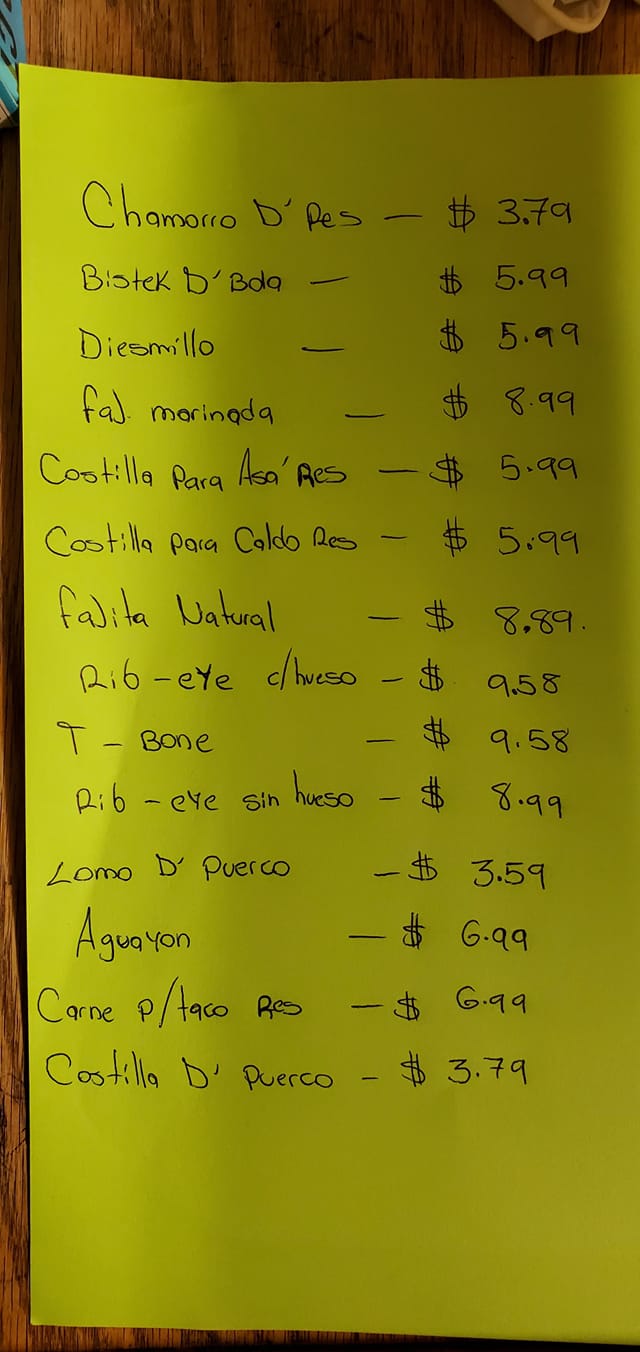 Chamorro D' Res - $ 3.79
Bistek D' Bola - $ 5.99
Diesmillo - $ 5.99
faj. marinada - $ 8.99
Costilla Para Asa' Res - $ 5.99
Costilla para Caldo Res - $ 5.99
fajita Natural - $ 8.89.
Rib-eye c/hueso - $ 9.58
T-Bone - $ 9.58
Rib-eye sin hueso - $ 8.99
Lomo D' Puerco - $ 3.59
Aguayon - $ 6.99
Carne p/taco Res - $ 6.99
Costilla D' Puerco - $ 3.79